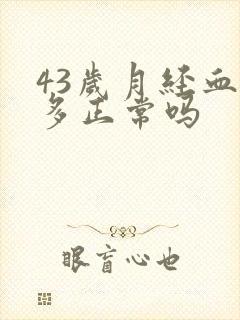 43歲月經血
多正常吗
眼盲心也